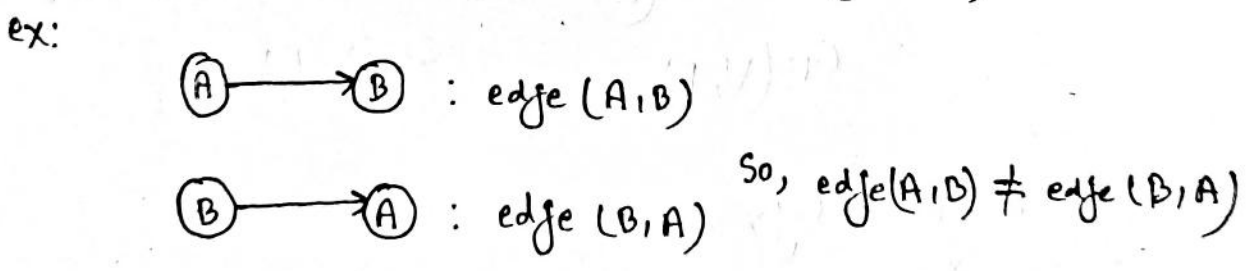 ex:
A B : edge (A,B)
B A : edge (B,A) So, edge(A,B) ≠ edge (B,A)